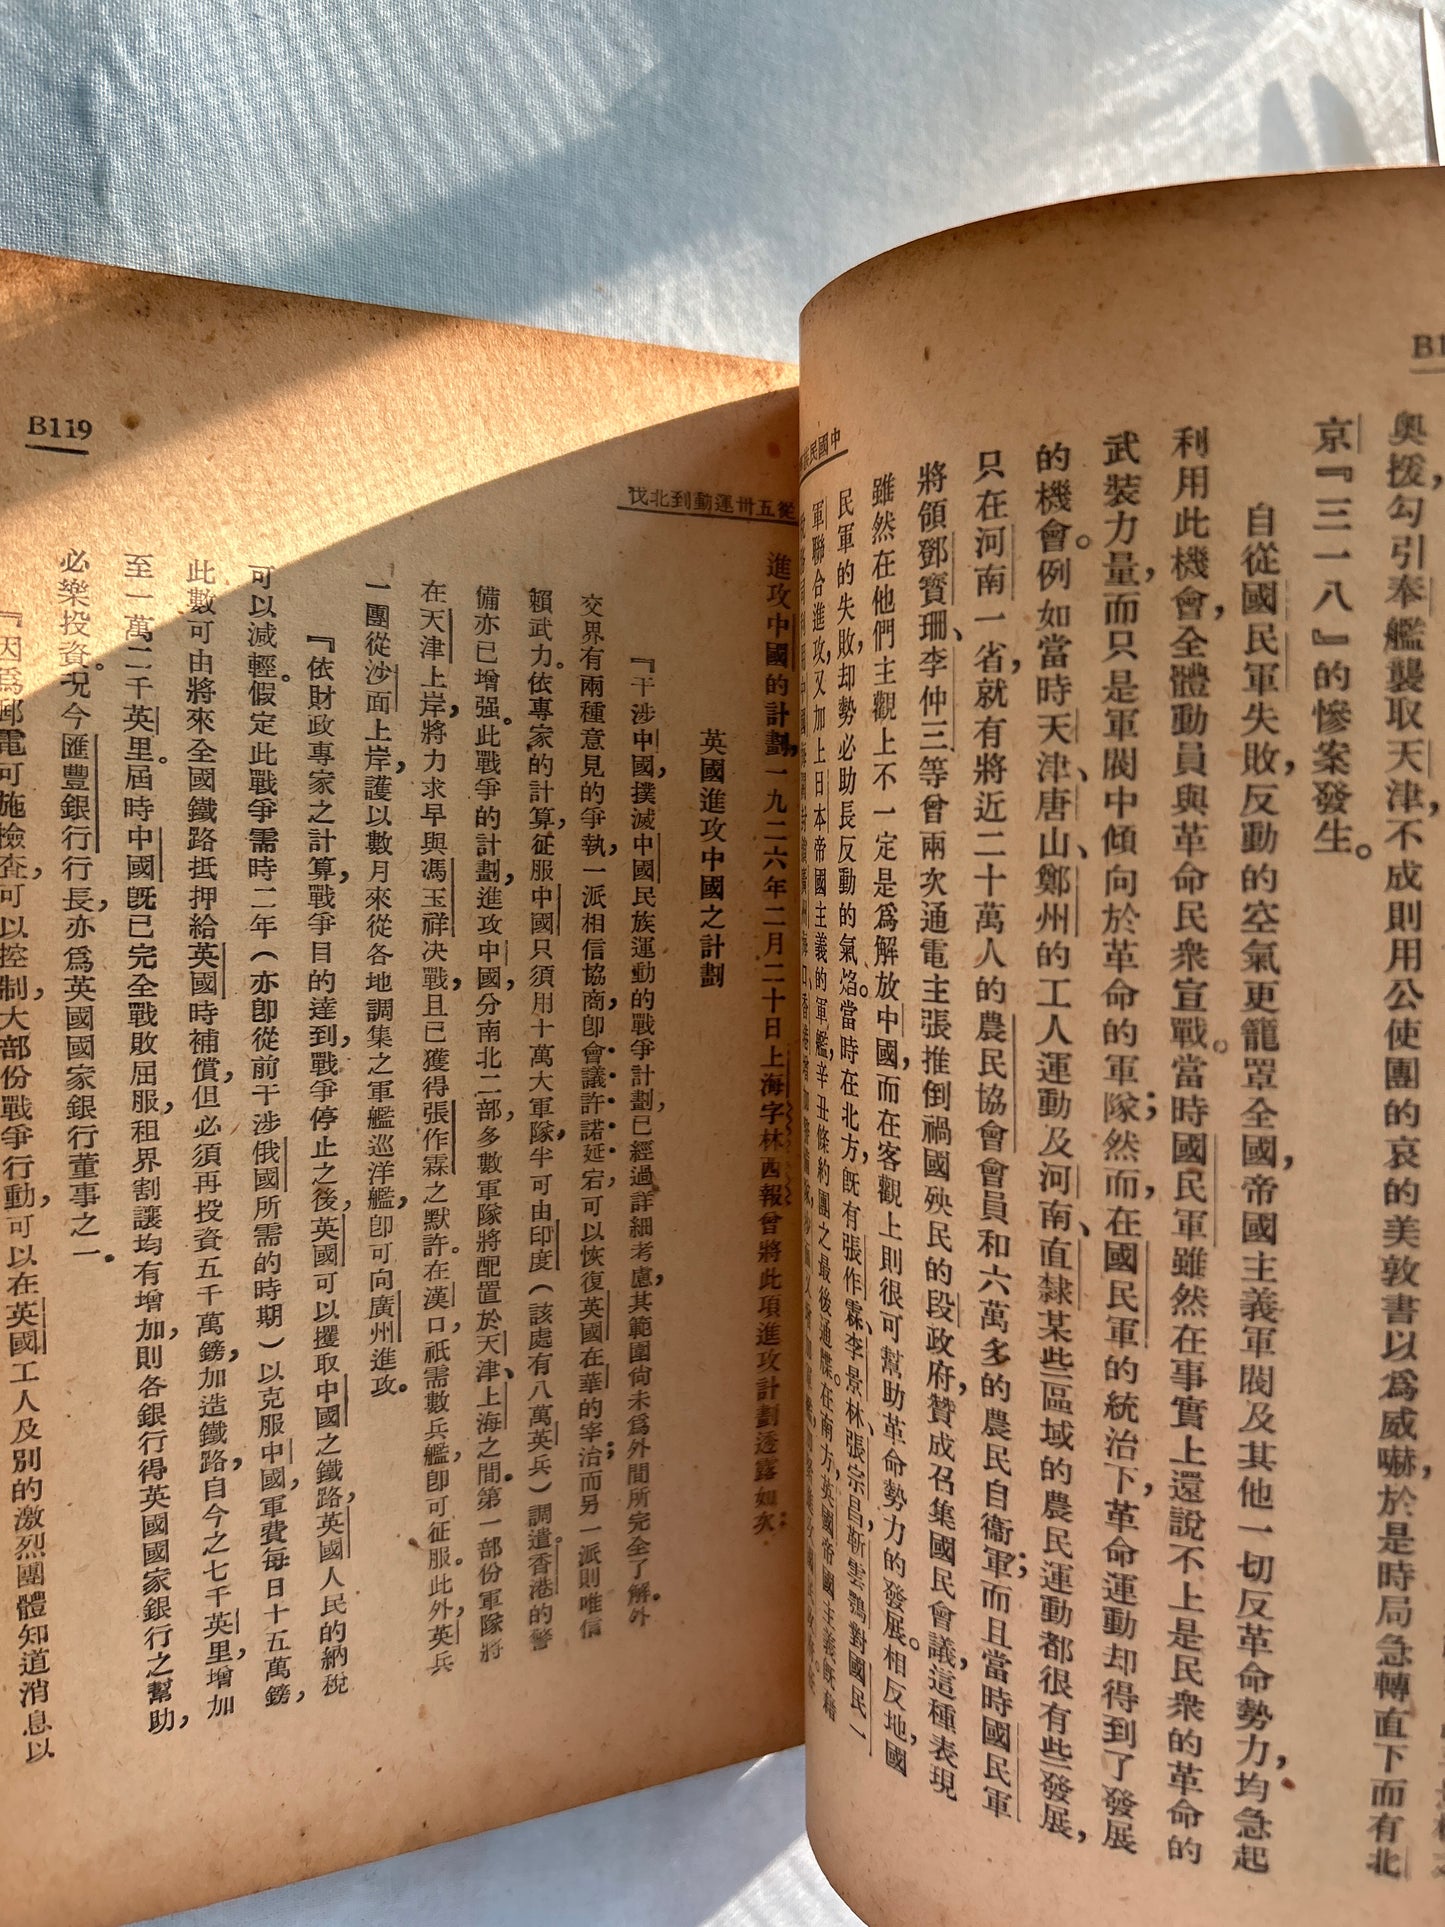 奧援,勾引奉艦襲取天津,不成則用公使團的哀的美敦書以爲威嚇,於是時局急轉直下而有北
京『三一八』的慘案發生。
自從國民軍失敗,反動的空氣更籠罩全國,帝國主義軍閥及其他一切反革命勢力,均急起
利用此機會,全體動員與革命民衆宣戰。當時國民軍雖然在事實上還說不上是民衆的革命的
武裝力量,而只是軍閥中傾向於革命的軍隊;然而,在國民軍的統治下,革命運動却得到了發展
的機會。例如當時天津、唐山、鄭州的工人運動及河南、直隸某些區域的農民運動都很有些發展,
只在河南一省,就有將近二十萬人的農民協會會員和六萬多的農民自衞軍;而且當時國民軍
將領鄧寳珊、李仲三等曾兩次通電主張推倒禍國殃民的段政府,贊成召集國民會議,這種表現
雖然在他們主觀上不一定是爲解放中國,而在客觀上則很可幫助革命勢力的發展。相反地,國
中國民
民軍的失敗,却勢必助長反動的氣焰。當時在北方,既有張作霖、李景林、張宗昌,靳雲鶚對國民一
軍聯合進攻,又加上日本帝國主義的軍艦,辛丑條約團之最後通牒。在南方,英國帝國主義既藉
從五卅運動到北伐
B119
進攻中國的計劃,一九二六年二月二十日上海字林西報曾將此項進攻計劃透露如次:
英國進攻中國之計劃
『干涉中國,撲滅中國民族運動的戰爭計劃,已經過詳細考慮,其範圍尙未爲外間所完全了解。外
交界有兩種意見的爭執,一派相信協商,卽會議許諾延宕,可以恢復英國在華的宰治;而另一派則唯信
賴武力。依專家的計算,征服中國只須用十萬大軍隊,半可由印度(該處有八萬英兵)調遣。香港的警
備亦已增强。此戰爭的計劃,進攻中國,分南北二部,多數軍隊將配置於天津、上海之間。第一部份軍隊將
在天津上岸,將力求早與馮玉祥决戰,且已獲得張作霖之默許。在漢口,祇需數兵艦,卽可征服。此外,英兵
一團從沙面上岸,護以數月來從各地調集之軍艦巡洋艦,卽可向廣州進攻。
『依財政專家之計算,戰爭目的達到,戰爭停止之後,英國可以攫取中國之鐵路,英國人民的納稅
可以減輕。假定此戰爭需時二年(亦卽從前干涉俄國所需的時期)以克服中國,軍費每日十五萬鎊,
此數可由將來全國鐵路抵押給英國時補償,但必須再投資五千萬鎊,加造鐵路,自今之七千英里,增加
至一萬二千英里。屆時中國旣已完全戰敗屈服,租界割讓均有增加,則各銀行得英國國家銀行之幫助,
必樂投資。况今匯豐銀行行長,亦爲英國國家銀行董事之一。
『因爲郵電可施檢查,可以控制,大部份戰爭行動,可以在英國工人及別的激烈團體知道消息以